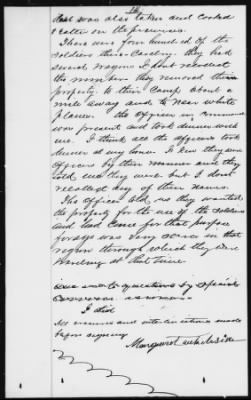 was also taken and cooked
on the premises.
There were four hundred of the
soldiers their Cavalry they had
several wagons I dont recollect
the number they removed their
property to their Camp about a
mile away and to near White
Plains. the officer in command
was present and took dinner with
me. I think all the officers took
dinner at my house. I knew they were
officers by their manner and they
told me they were but I dont
recollect any of their names.
The officer told me they wanted
the property for the use of the soldiers
and had come for that purpose
forage was very scarce in that
region through which they were
traveling at that time.
answer to questions by Special
I did
All erasures and interlineations made
before signing
Margaret Whiteside